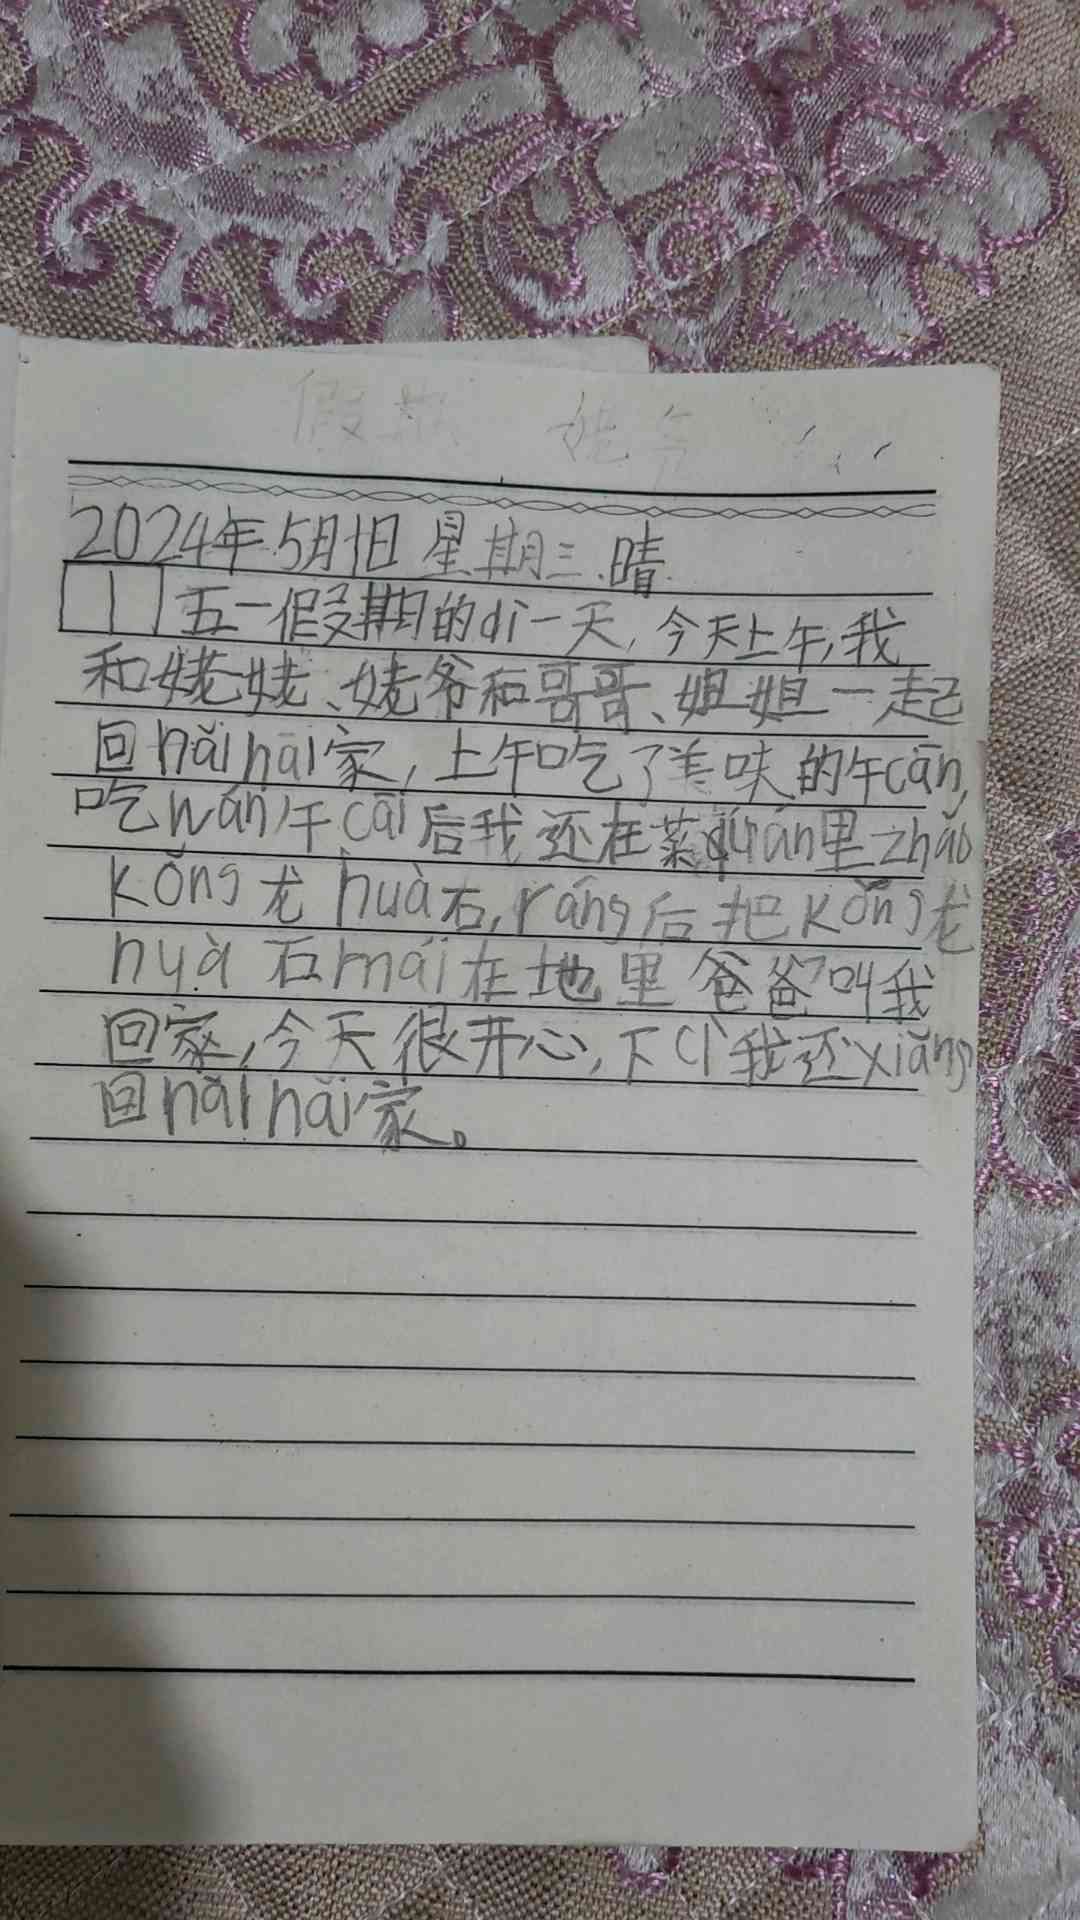 假期 姥爷
2024年5月1日 星期三.晴
1 五一假期的dì一天,今天上午,我
和姥姥、姥爷和哥哥、姐姐一起
回nǎi nāi家,上午吃了美味的午cān,
吃wán午cāi后我还在菜yuán里zhǎo
kǒng龙huà石,ráng后把kǒng龙
huà石mái在地里爸爸叫我
回家,今天很开心,下cì我还xiǎng
回nǎi nǎi家。